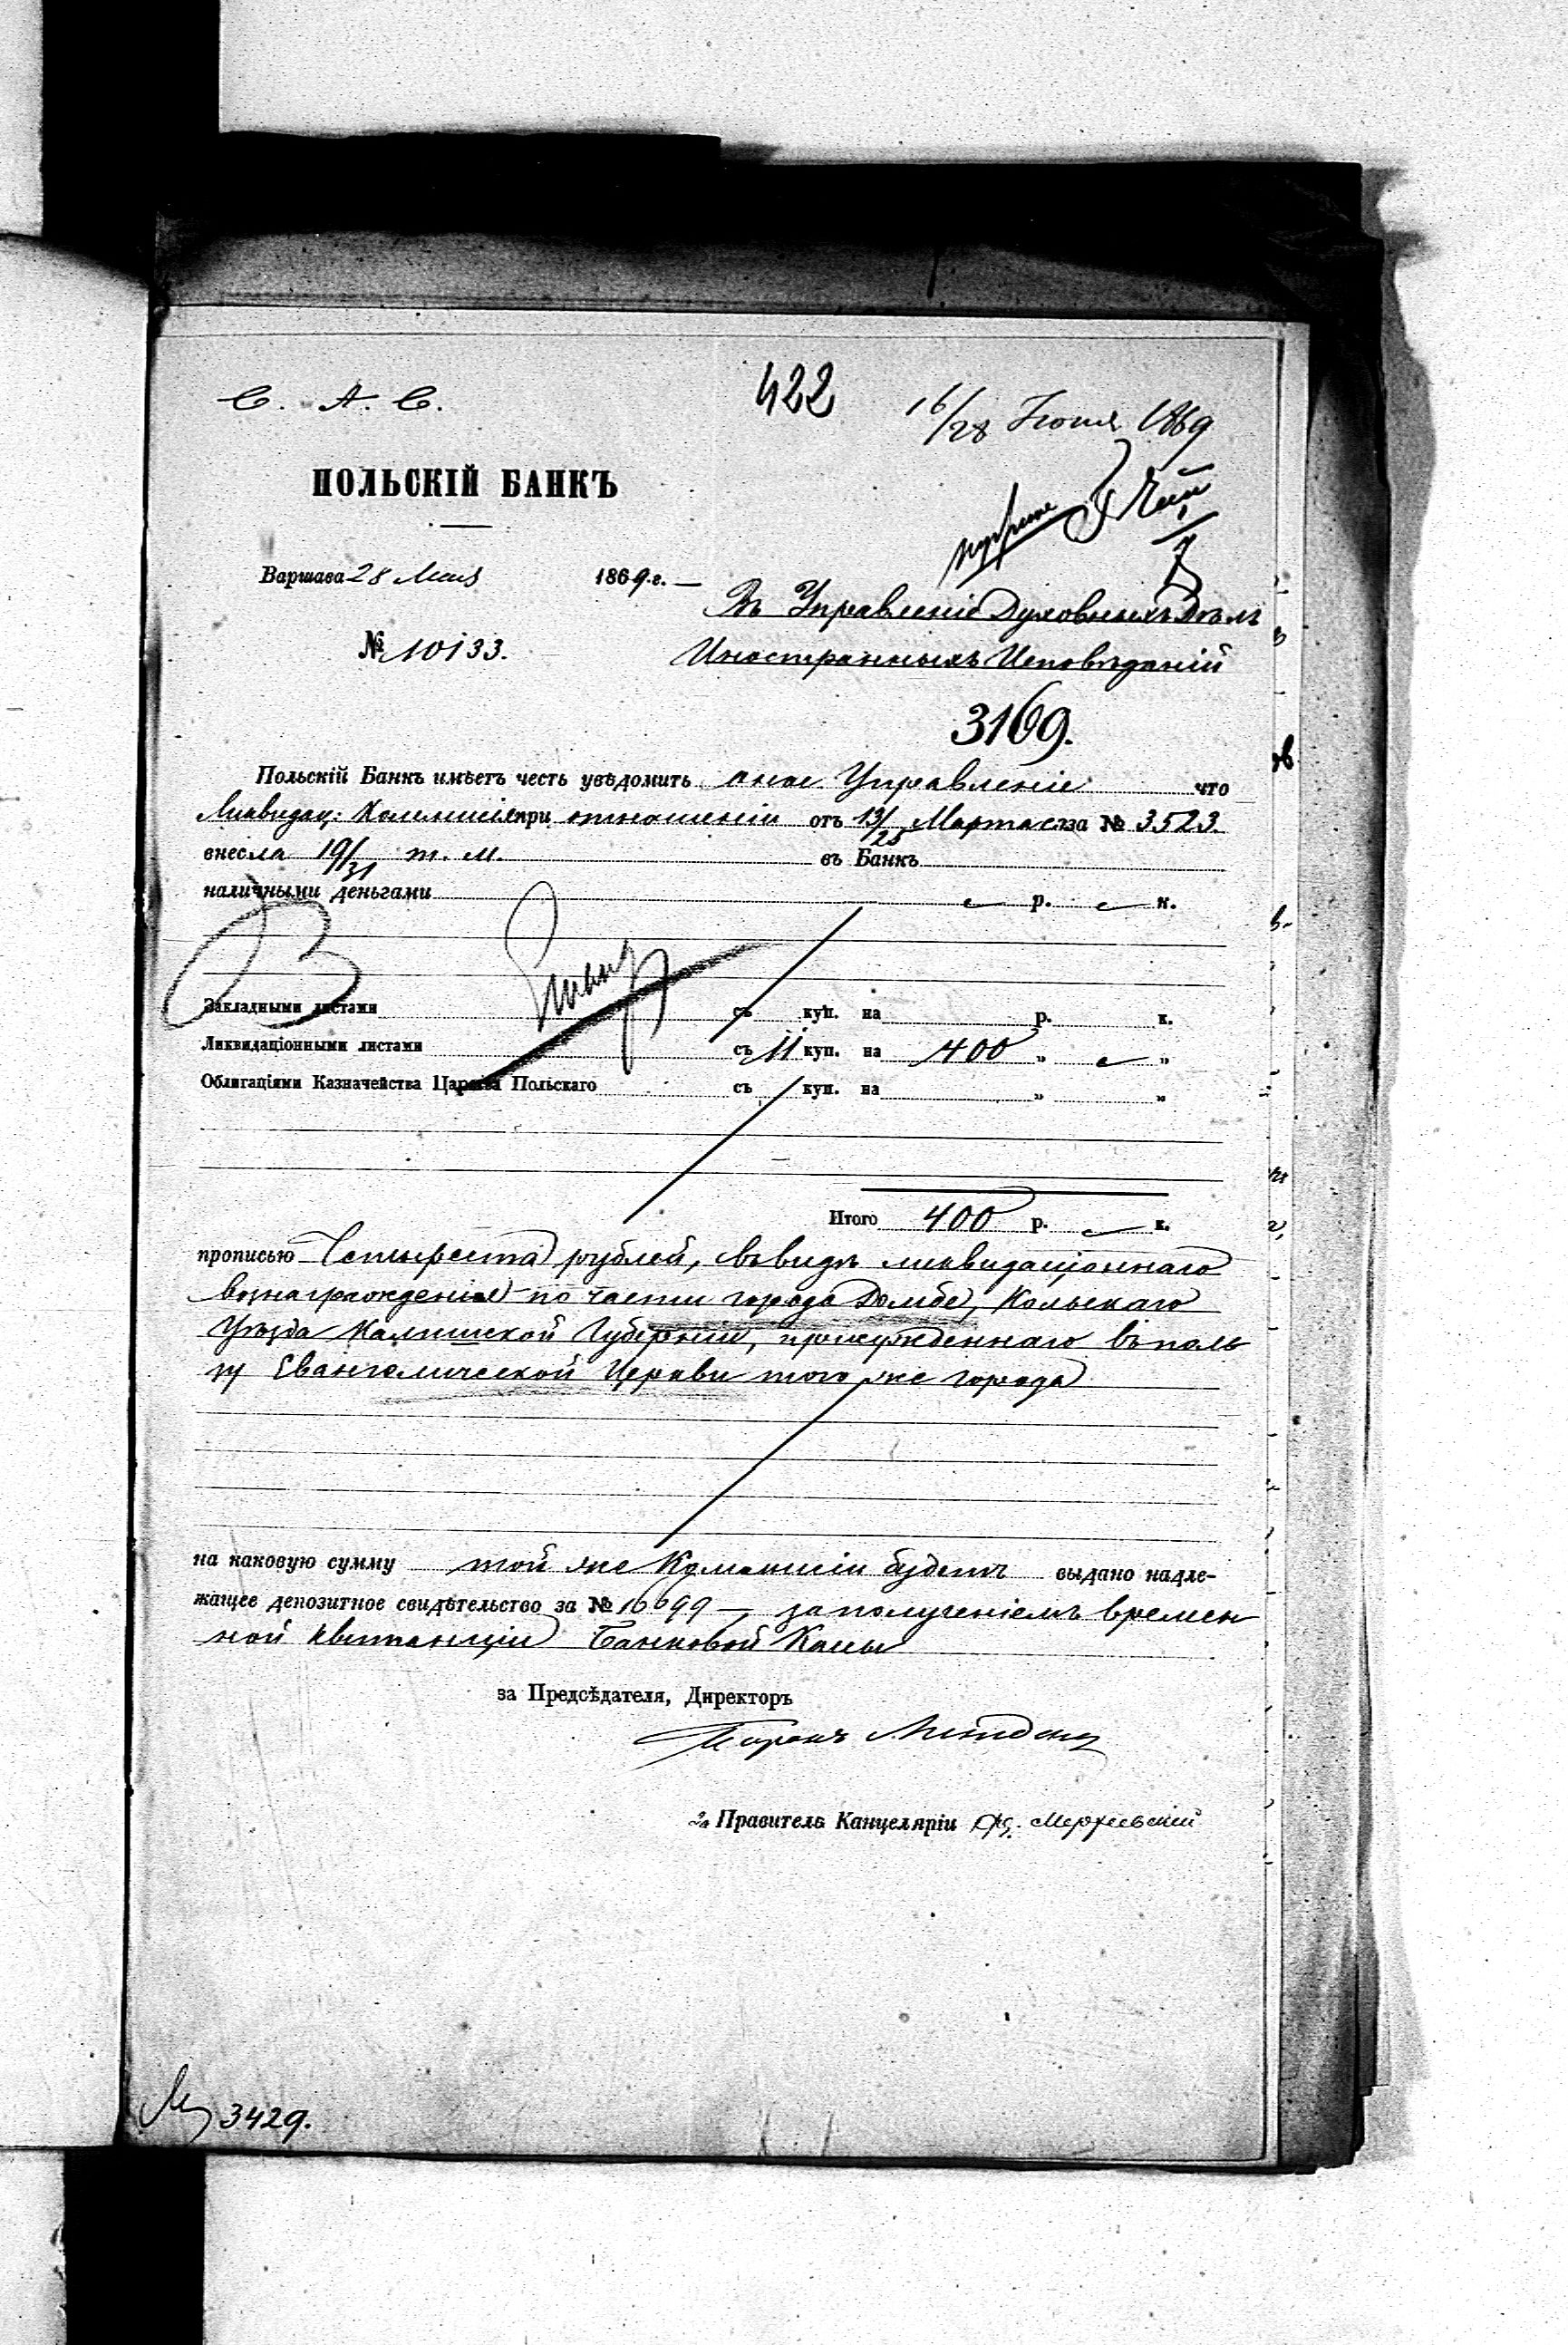 С. А. С.
422
16/28 Іюня 1869
ПОЛЬСКІЙ БАНКЪ
Варшава 28 Мая 1869 г.
Въ Управленіе Духовныхъ Дѣлъ
№ 10133.
Иностранныхъ Исповѣданій
3169.
Польскій Банкъ имѣетъ честь увѣдомить оное Управленіе что
Ликвидац: Коммисія при отношеніи отъ 13/25 Марта за № 3523.
внесла 19/31 т. м. въ Банкъ
наличными деньгами р. к.
Закладными листами съ куп. на р. к.
Ликвидаціонными листами съ 11 куп. на 400 „ „
Облигаціями Казначейства Царства Польскаго съ куп. на „ „
Итого 400 р. к.
прописью Четыреста рублей, въ видѣ ликвидаціоннаго
вознагражденія по части города Домбе, Кольскаго
Уѣзда Калишской Губерніи, присужденнаго въ поль
зу Евангелической Церкви того же города
на каковую сумму той же Коммисіи будетъ выдано надле-
жащее депозитное свидѣтельство за № 10699 —, за полученіемъ времен
ной квитанціи Банковой Кассы
за Предсѣдателя, Директоръ
Баронъ
за Правитель Канцеляріи
3429.